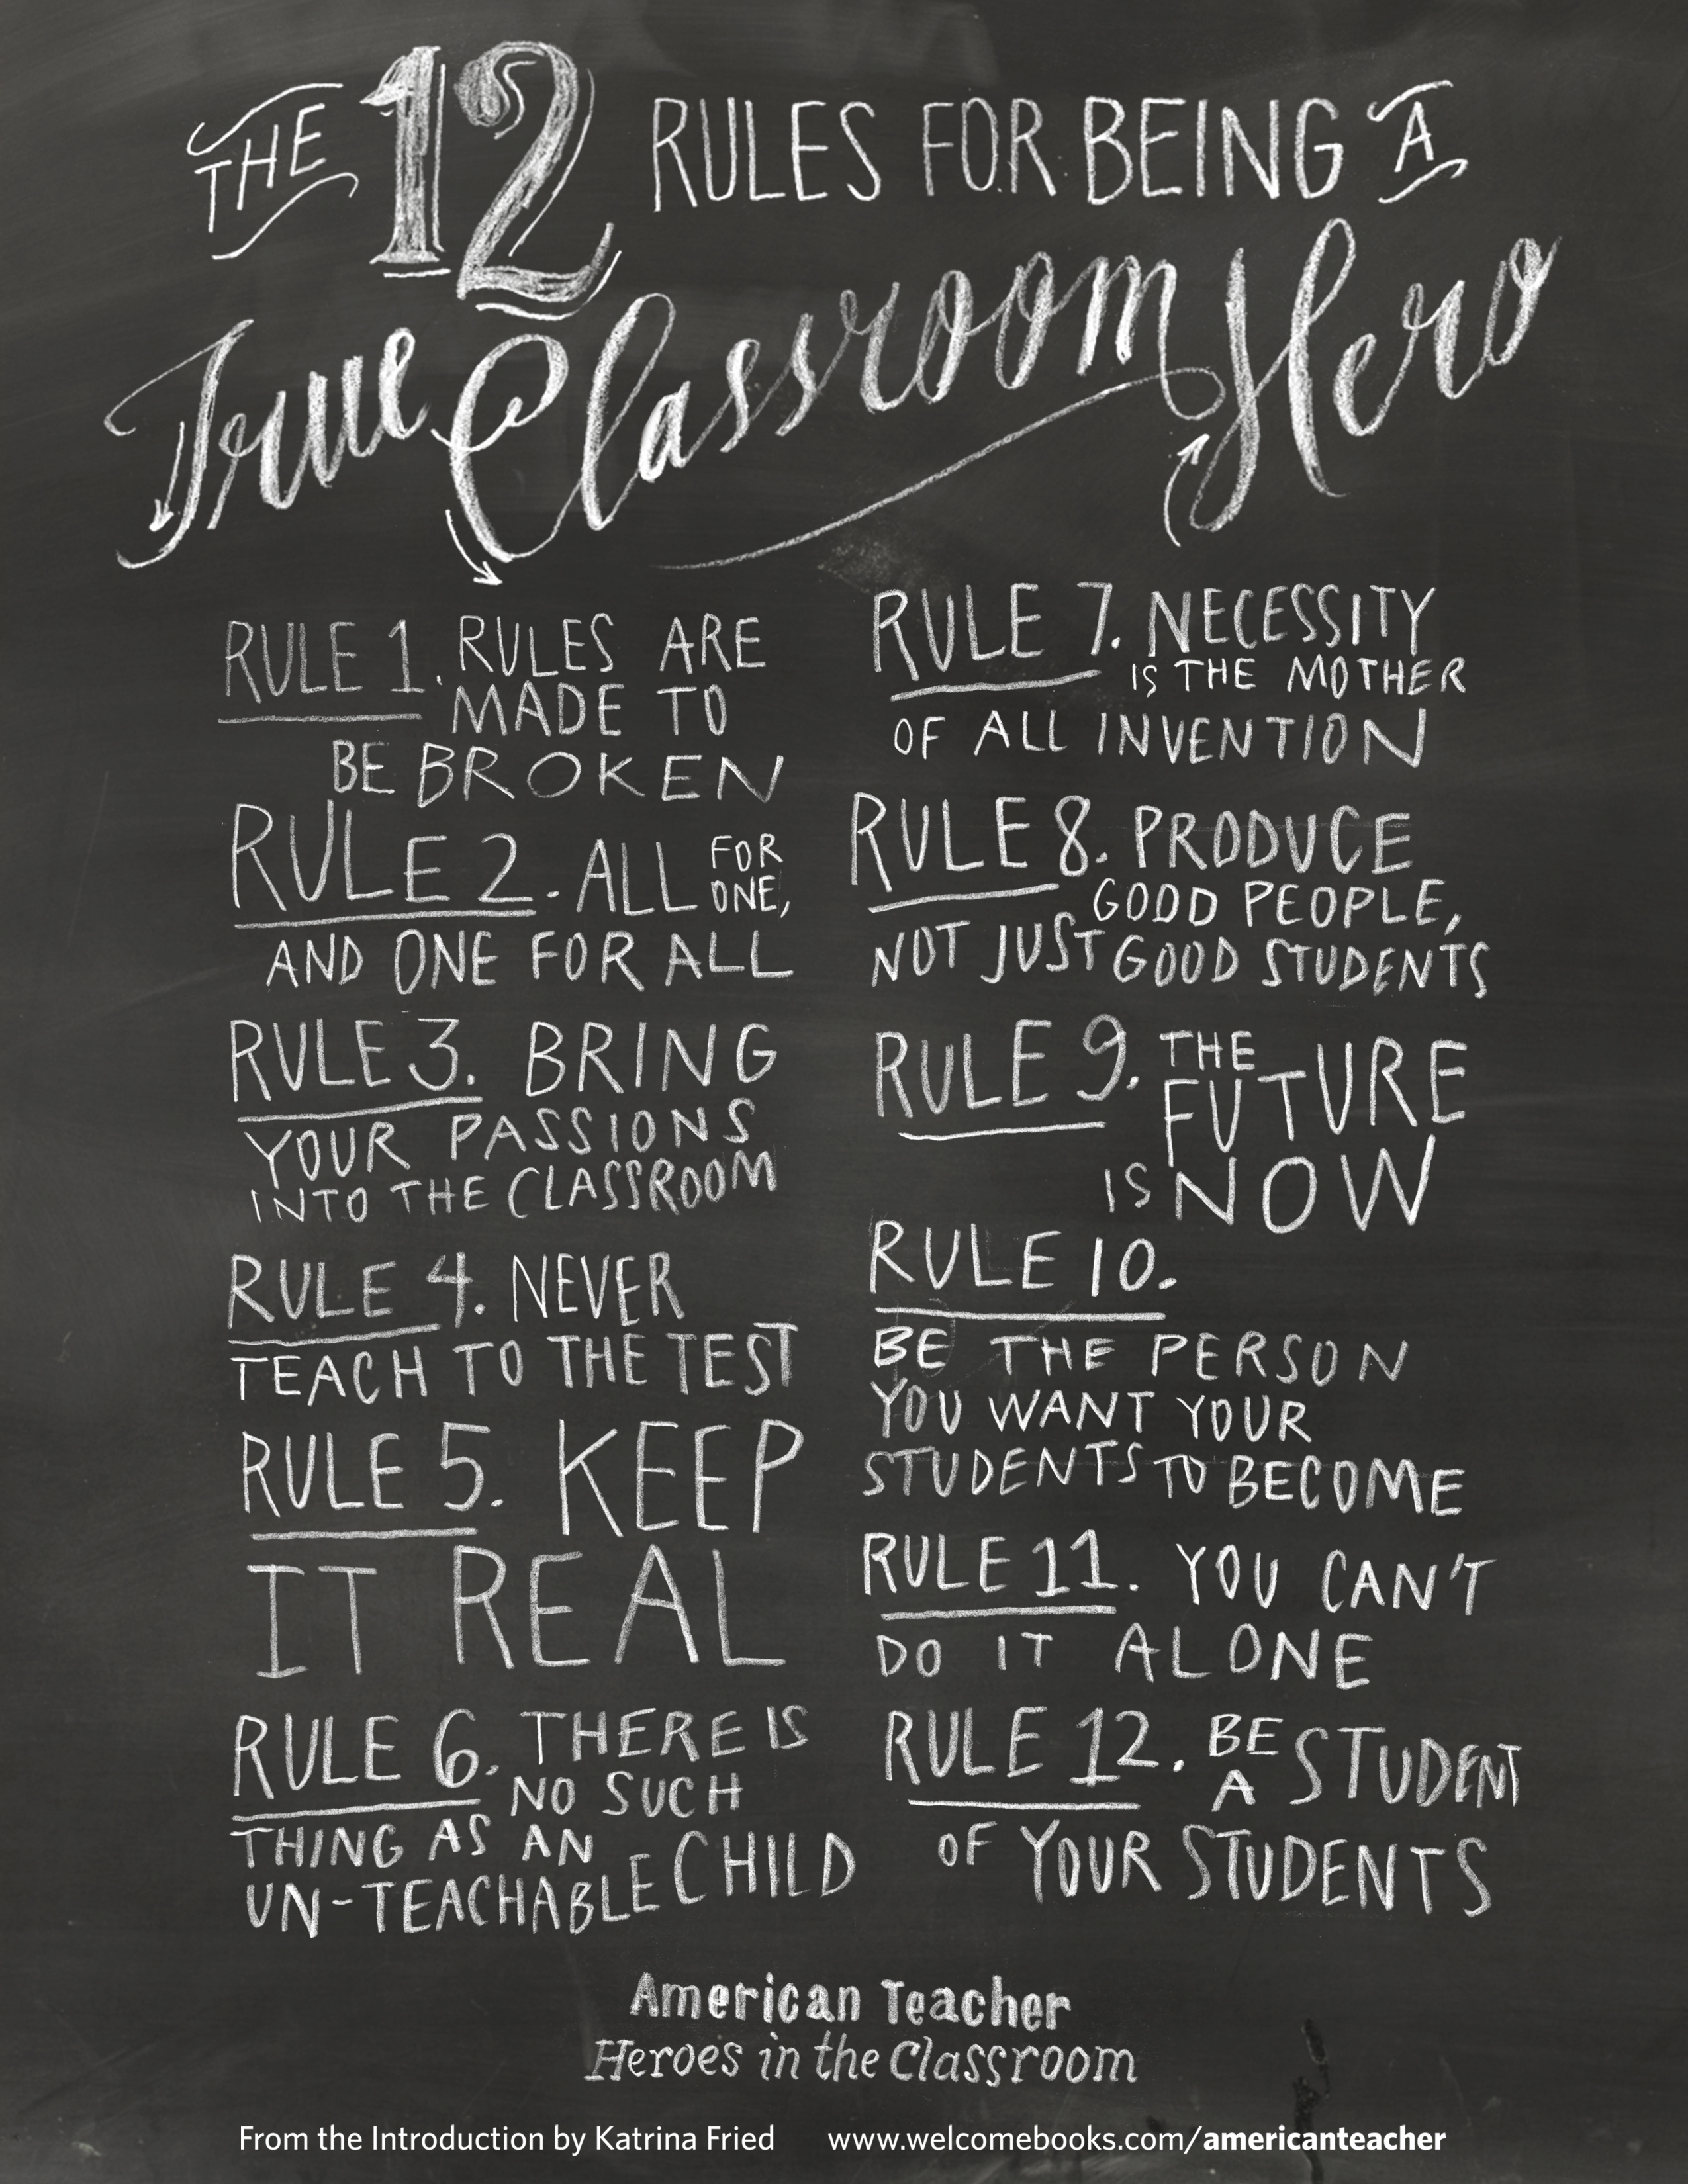 THE 12 RULES FOR BEING A
True Classroom Hero
RULE 1. RULES ARE
MADE TO
BE BROKEN
RULE 2. ALL FOR
ONE,
AND ONE FOR ALL
RULE 3. BRING
YOUR PASSIONS
INTO THE CLASSROOM
RULE 4. NEVER
TEACH TO THE TEST
RULE 5. KEEP
IT REAL
RULE 6. THERE IS
NO SUCH
THING AS AN
UN-TEACHABLE CHILD
RULE 7. NECESSITY
IS THE MOTHER
OF ALL INVENTION
RULE 8. PRODUCE
GOOD PEOPLE,
NOT JUST GOOD STUDENTS
RULE 9. THE
FUTURE
IS NOW
RULE 10.
BE THE PERSON
YOU WANT YOUR
STUDENTS TO BECOME
RULE 11. YOU CAN'T
DO IT ALONE
RULE 12. BE
A STUDENT
OF YOUR STUDENTS
American Teacher
Heroes in the Classroom
From the Introduction by Katrina Fried www.welcomebooks.com/americanteacher